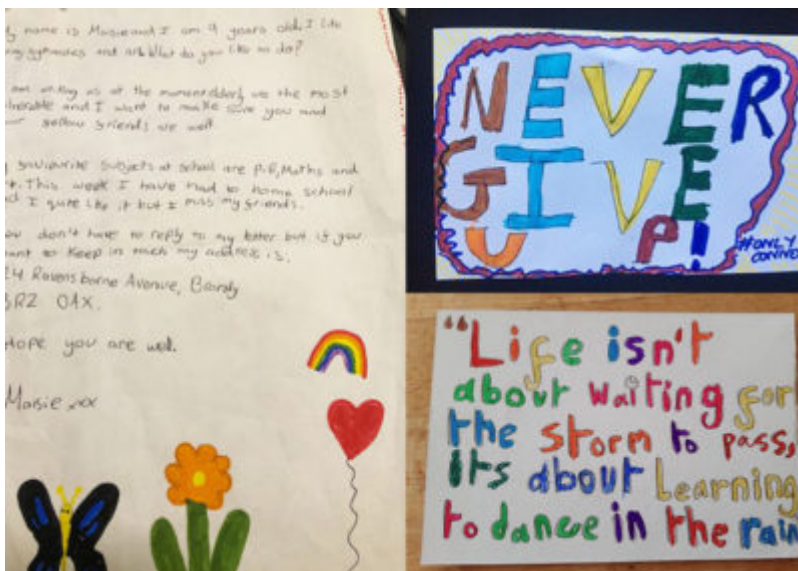 y name is Maisie and I am 9 years old. I like
ng gymnastics and art. What do you like to do?
am writing as at the moment elderly are the most
lnerable and I want to make sure you and
ur fellow friends are well.
favourite subjects at school are P.E, Maths and
This week I have had to home school
d I quite like it but I miss my friends.
ou don't have to reply to my letter but if you
ant to keep in touch my address is.
24 Ravensborne Avenue,
BR2 0AX.
Hope you are well.
Maisie xxx
NEVER
GIVE
UP!
#ONLY
CONNE
"Life isn't
about waiting for
the storm to pass,
Its about Learning
to dance in the rain